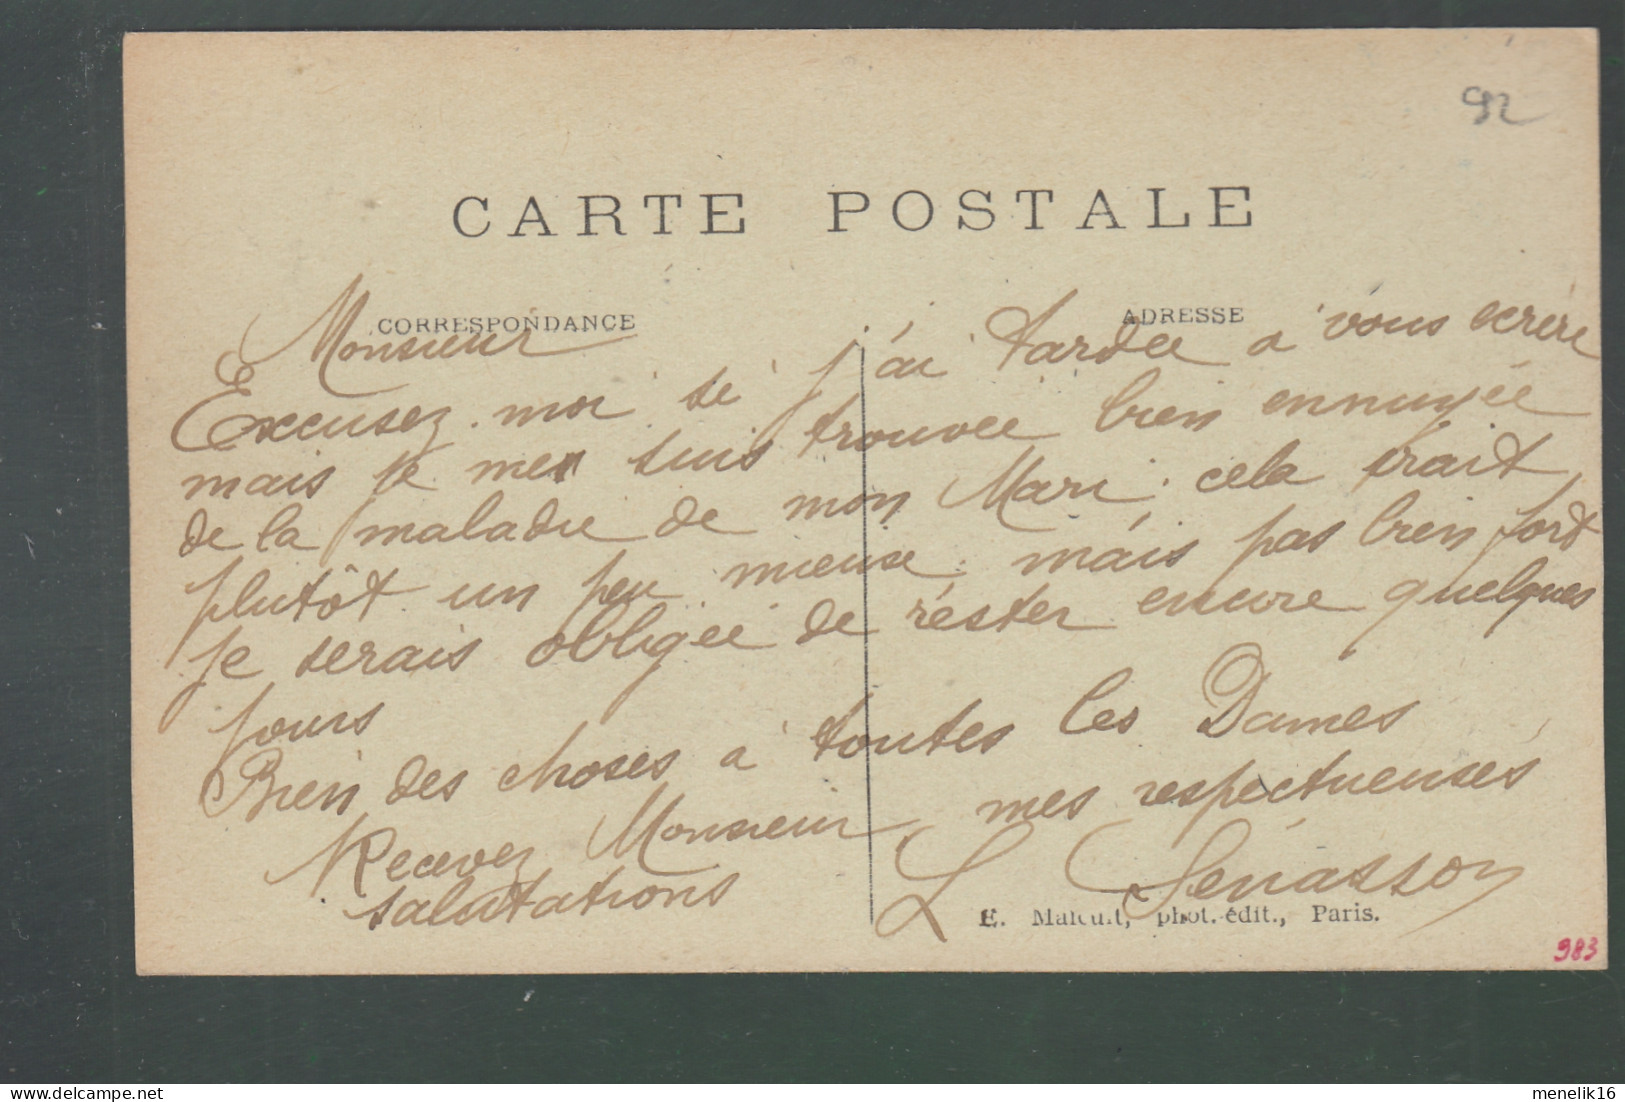 92
CARTE POSTALE
CORRESPONDANCE
ADRESSE
Monsieur
Excusez-moi si j'ai tardée a vous ecrire
mais je me suis trouvée bien ennuyée
de la maladie de mon Mari. cela irait
plutôt un peu mieuse. mais pas bien fort
je serais obligée de rester encore quelques
jours
Bien des choses à toutes les Dames
Recevez Monsieur mes respectueuses
salutations
L
E. Malcuit, phot.-édit., Paris.
983
menelik16